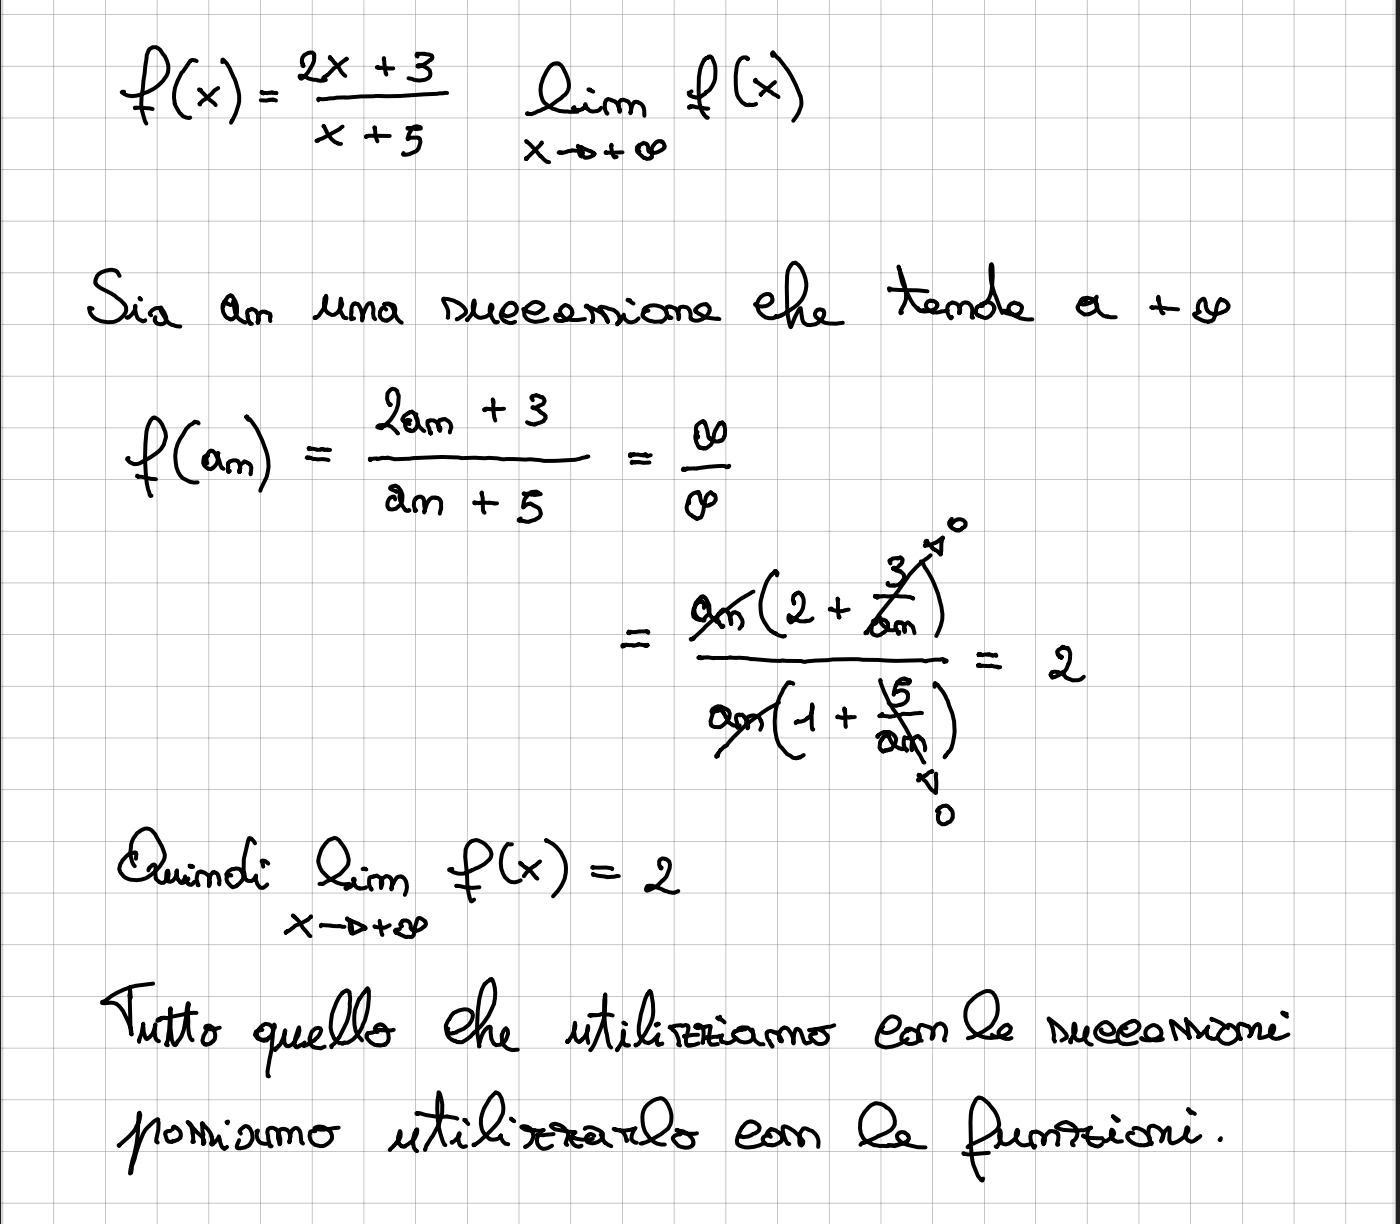 f(x) = (2x + 3)/(x + 5) lim x→+∞ f(x)
Sia an una successione che tende a +∞
f(an) = (2an + 3)/(an + 5) = ∞/∞
= an(2 + 3/an)→0 / an(1 + 5/an)→0 = 2
Quindi lim x→+∞ f(x) = 2
Tutto quello che utilizziamo con le successioni
possiamo utilizzarlo con le funzioni.